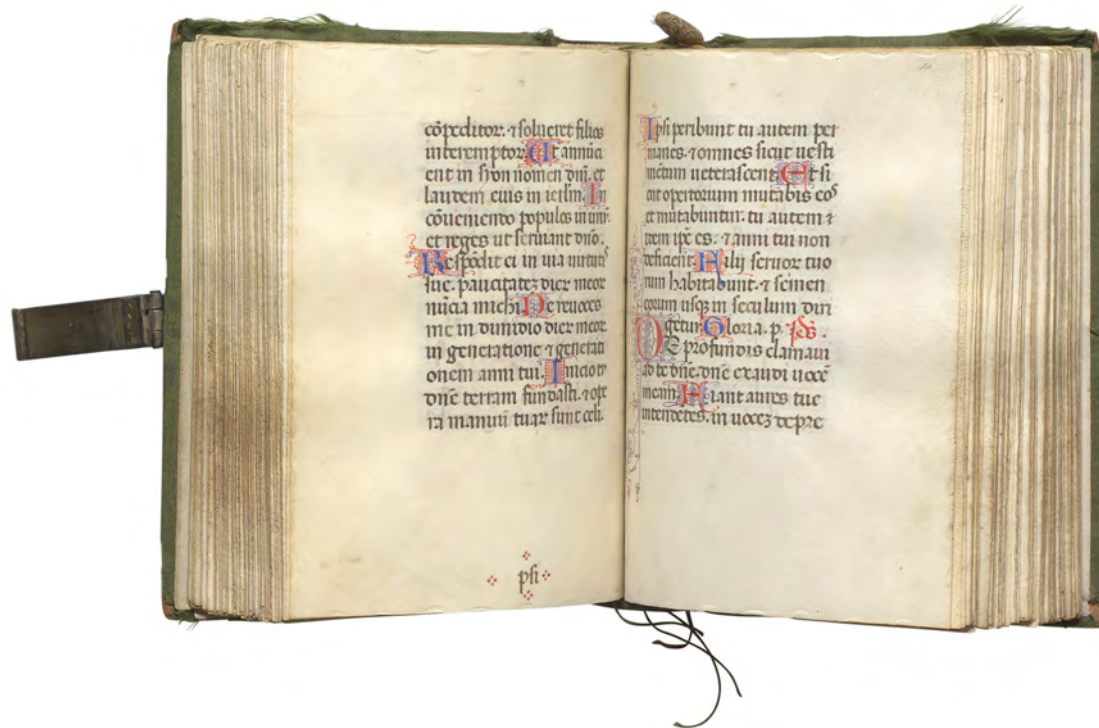 cõpeditoꝝ. ⁊ solueret filios
interemptoꝝ Ut annũci
ent in syon nomen dñi. et
laudem eius in ierl̃m. In
cõueniendo populos in unũ.
et reges ut seruiant dño.
Respõdit ei in uia uirtutꝭ
sue. paucitatez dieꝝ meoꝝ
nũcia michi. Ne reuoces
me in dimidio dieꝝ meoꝝ
in generatione ⁊ generati
onem anni tui. Inicio tu
dñe terram fundasti. ⁊ ope
ra manuũ tuaꝝ sunt celi.
psi
Ipsi peribunt tu autem per
manes. ⁊ omnes sicut uesti
mẽtum ueterascent. Et si
cut opertorium mutabis eos
et mutabuntur. tu autem i
dem ip̃e es. ⁊ anni tui non
deficient. Filij seruoꝝ tuo
rum habitabunt. ⁊ semen
eorum usqꝫ in seculum diri
getur. Gloria. p. ps̃.
DE profundis clamaui
ad te dñe. dñe exaudi uocẽ
meam. Fiant aures tue
intendẽtes. in uocez depre